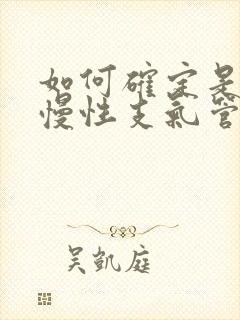 如何確定是
慢性支氣管
吳凱庭